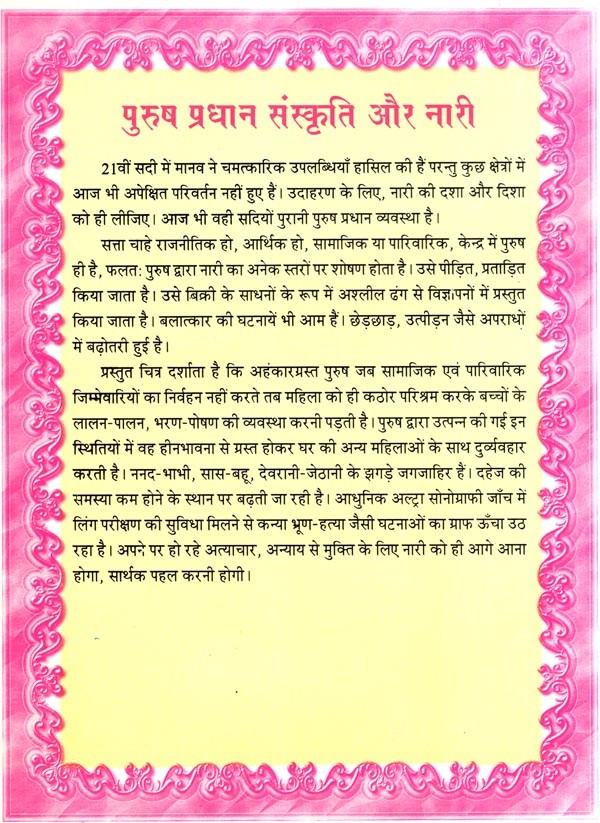 पुरुष प्रधान संस्कृति और नारी
21वीं सदी में मानव ने चमत्कारिक उपलब्धियाँ हासिल की हैं परन्तु कुछ क्षेत्रों में
आज भी अपेक्षित परिवर्तन नहीं हुए हैं। उदाहरण के लिए, नारी की दशा और दिशा
को ही लीजिए। आज भी वही सदियों पुरानी पुरुष प्रधान व्यवस्था है।
सत्ता चाहे राजनीतिक हो, आर्थिक हो, सामाजिक या पारिवारिक, केन्द्र में पुरुष
ही है, फलत: पुरुष द्वारा नारी का अनेक स्तरों पर शोषण होता है। उसे पीड़ित, प्रताड़ित
किया जाता है। उसे बिक्री के साधनों के रूप में अश्लील ढंग से विज्ञापनों में प्रस्तुत
किया जाता है। बलात्कार की घटनायें भी आम हैं। छेड़छाड़, उत्पीड़न जैसे अपराधों
में बढ़ोतरी हुई है।
प्रस्तुत चित्र दर्शाता है कि अहंकारग्रस्त पुरुष जब सामाजिक एवं पारिवारिक
जिम्मेवारियों का निर्वहन नहीं करते तब महिला को ही कठोर परिश्रम करके बच्चों के
लालन-पालन, भरण-पोषण की व्यवस्था करनी पड़ती है। पुरुष द्वारा उत्पन्न की गई इन
स्थितियों में वह हीनभावना से ग्रस्त होकर घर की अन्य महिलाओं के साथ दुर्व्यवहार
करती है। ननद-भाभी, सास-बहू, देवरानी-जेठानी के झगड़े जगजाहिर हैं। दहेज की
समस्या कम होने के स्थान पर बढ़ती जा रही है। आधुनिक अल्ट्रा सोनोग्राफी जाँच में
लिंग परीक्षण की सुविधा मिलने से कन्या भ्रूण-हत्या जैसी घटनाओं का ग्राफ ऊँचा उठ
रहा है। अपने पर हो रहे अत्याचार, अन्याय से मुक्ति के लिए नारी को ही आगे आना
होगा, सार्थक पहल करनी होगी।